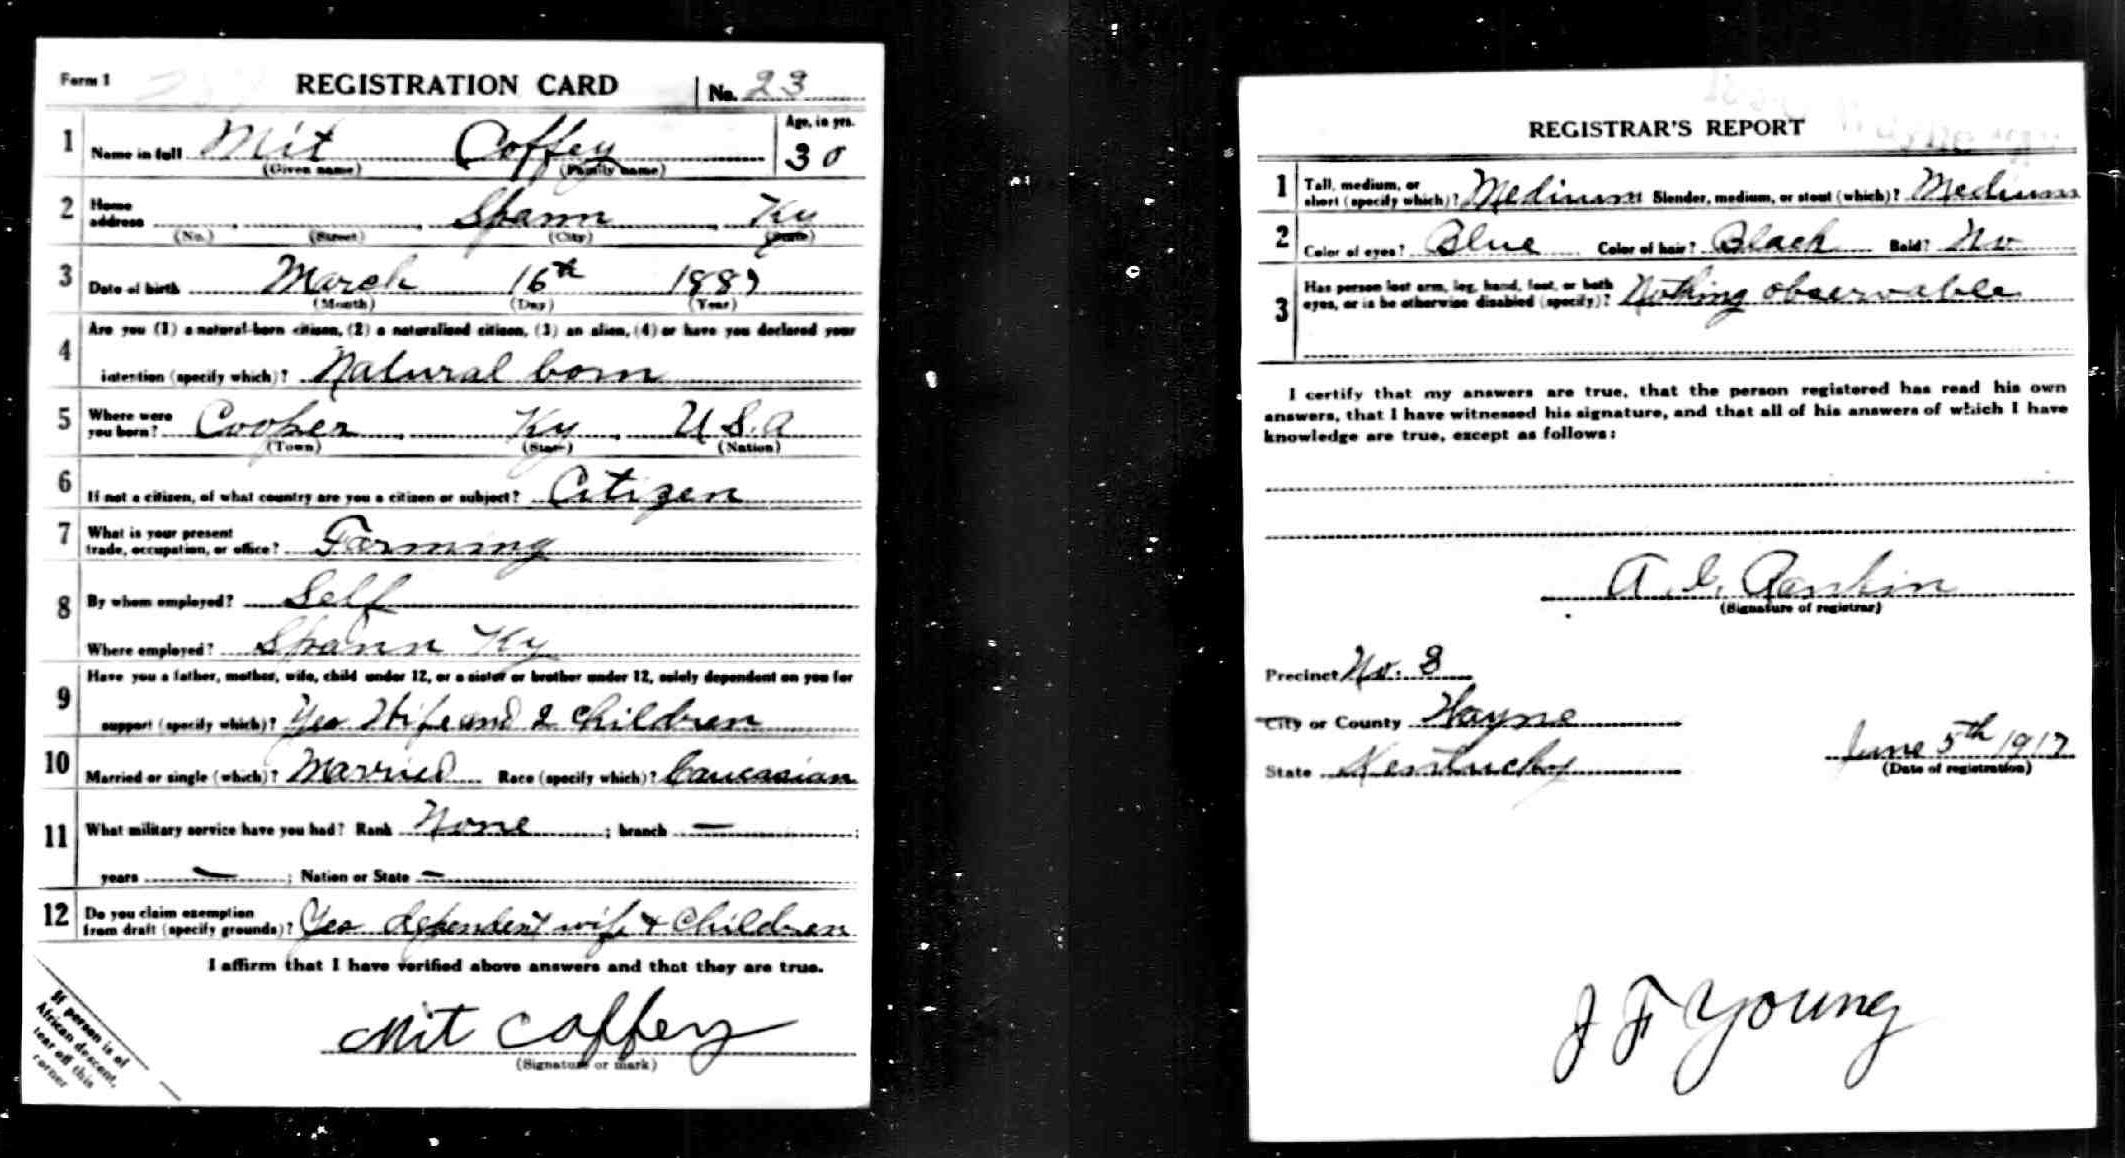 Form 1 REGISTRATION CARD No. 23
1 Name in full Mit Coffey Age, in yrs. 30
(Given name) (Family name)
2 Home address Spann Ky
(No.) (Street) (City) (State)
3 Date of birth March 16th 1887
(Month) (Day) (Year)
4 Are you (1) a natural-born citizen, (2) a naturalized citizen, (3) an alien, (4) or have you declared your
intention (specify which)? Natural born
5 Where were you born? Cooper Ky U.S.A
(Town) (State) (Nation)
6 If not a citizen, of what country are you a citizen or subject? Citizen
7 What is your present trade, occupation, or office? Farming
8 By whom employed? Self
Where employed? Spann Ky
9 Have you a father, mother, wife, child under 12, or a sister or brother under 12, solely dependent on you for
support (specify which)? Yes Wife and 2 Children
10 Married or single (which)? Married Race (specify which)? Caucasian
11 What military service have you had? Rank None ; branch — ;
years — ; Nation or State —
12 Do you claim exemption from draft (specify grounds)? Yes dependent wife & Children
I affirm that I have verified above answers and that they are true.
Mit Coffey
(Signature or mark)
If person is of
African descent,
tear off this
corner
REGISTRAR'S REPORT
1 Tall, medium, or short (specify which)? Medium Slender, medium, or stout (which)? Medium
2 Color of eyes? Blue Color of hair? Black Bald? No
3 Has person lost arm, leg, hand, foot, or both eyes, or is he otherwise disabled (specify)? Nothing observable
I certify that my answers are true, that the person registered has read his own
answers, that I have witnessed his signature, and that all of his answers of which I have
knowledge are true, except as follows:
A. G. Rankin
(Signature of registrar)
Precinct No. 8
City or County Wayne
State Kentucky
June 5th 1917
(Date of registration)
J F Young